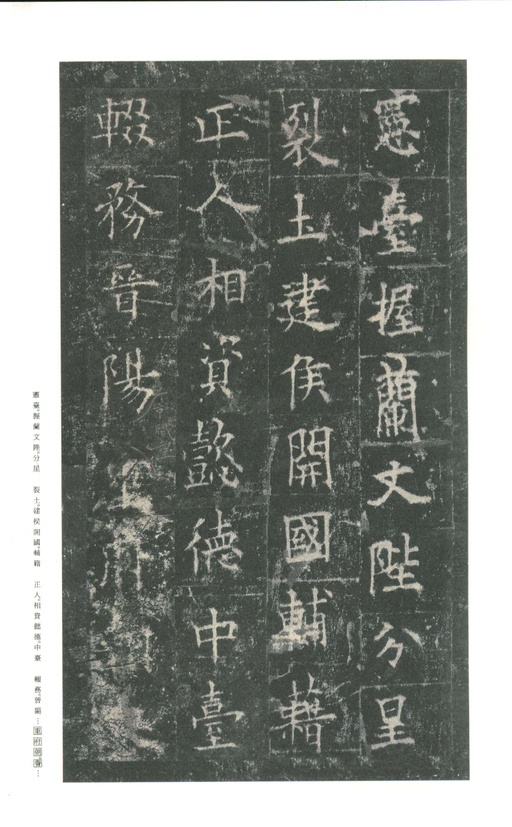 憲臺握蘭文陛分星
裂土建侯開國輔藉
正人相資懿德中臺
輟務晉陽
憲臺。握蘭文陛。分星 裂土。建侯開國。輔籍 正人。相資懿德。中臺 輟務。晉陽…